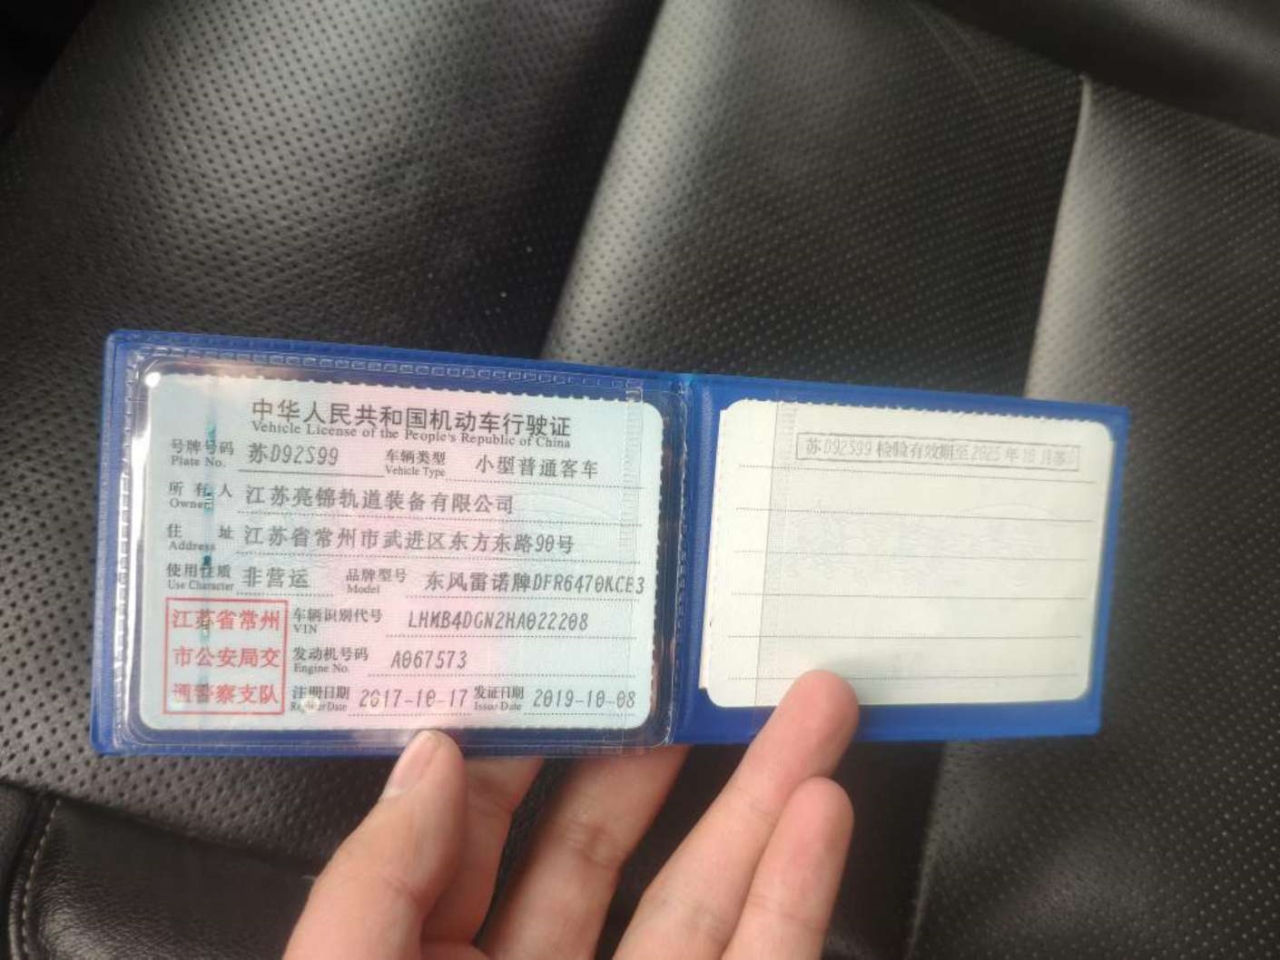 中华人民共和国机动车行驶证
Vehicle License of the People's Republic of China
号牌号码 苏D92S99 车辆类型 小型普通客车
Plate No. Vehicle Type
所有人 江苏亮锦轨道装备有限公司
Owner
住址 江苏省常州市武进区东方东路90号
Address
使用性质 非营运 品牌型号 东风雷诺牌DFR6470KCE3
Use Character Model
江苏省常州 车辆识别代号 LHMB4DGN2HA022208
VIN
市公安局交 发动机号码 A067573
Engine No.
通警察支队 注册日期 2017-10-17 发证日期 2019-10-08
Register Date Issue Date
苏D92S99 检验有效期至2025年10月